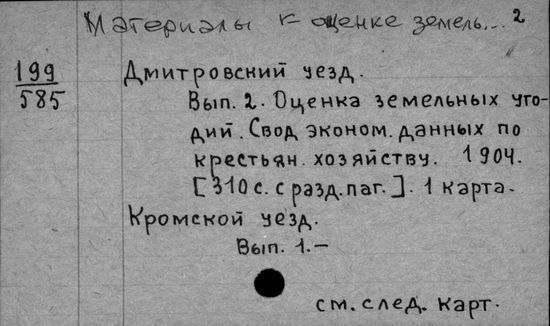 Материалы к оценке земель... 2
199
585
Дмитровский уезд.
Вып. 2. Оценка земельных уго-
дий. Свод эконом. данных по
крестьян. хозяйству. 1904.
[310 с. с разд. паг.]. 1 карта.
Кромской уезд.
Вып. 1.–
см. след. карт.